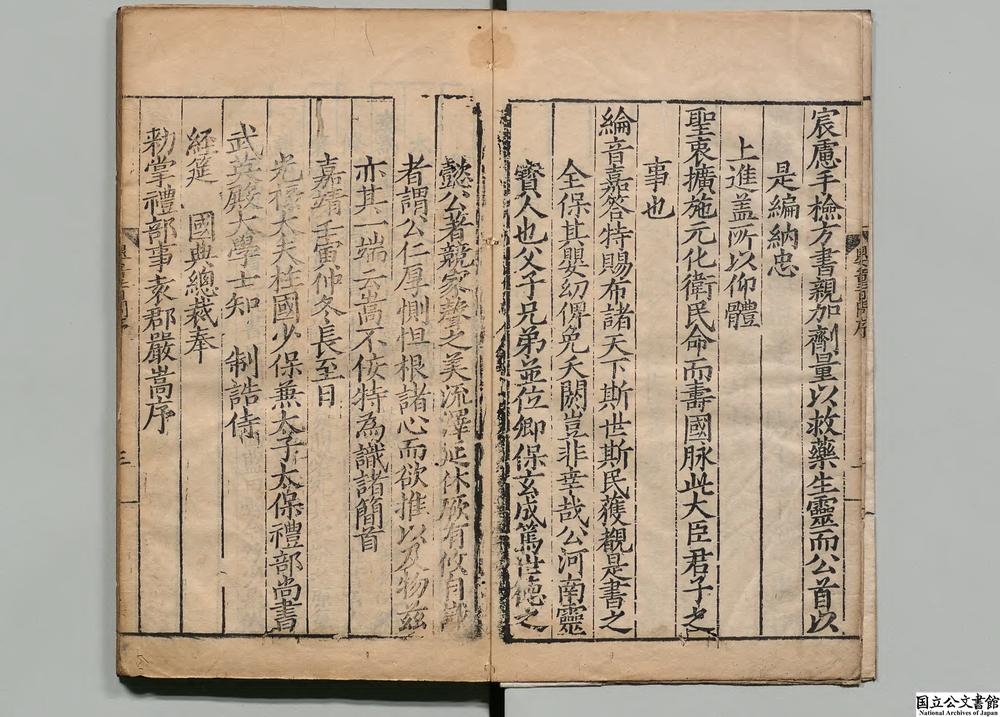 宸慮手檢方書親加劑量以救藥生靈而公首以
是編納忠
上進蓋所以仰體
聖衷擴施元化衛民命而壽國脉此大臣君子之
事也
綸音嘉答特賜布諸天下斯世斯民獲覩是書之
全保其嬰幼俾免夭閼豈非幸哉公河南靈
寳人也父子兄弟並位卿保玄成篤世德之
懿公著競家聲之美流澤延休厥有攸自
者謂公仁厚惻怛根諸心而欲推以及物茲
亦其一端云嵩不佞特為識諸簡首
嘉靖壬寅仲冬長至日
光祿大夫柱國少保兼太子太保禮部尚書
武英殿大學士知 制誥侍
經筵 國典總裁奉
勑掌禮部事袁郡嚴嵩序
序
三
国立公文書館
National Archives of Japan